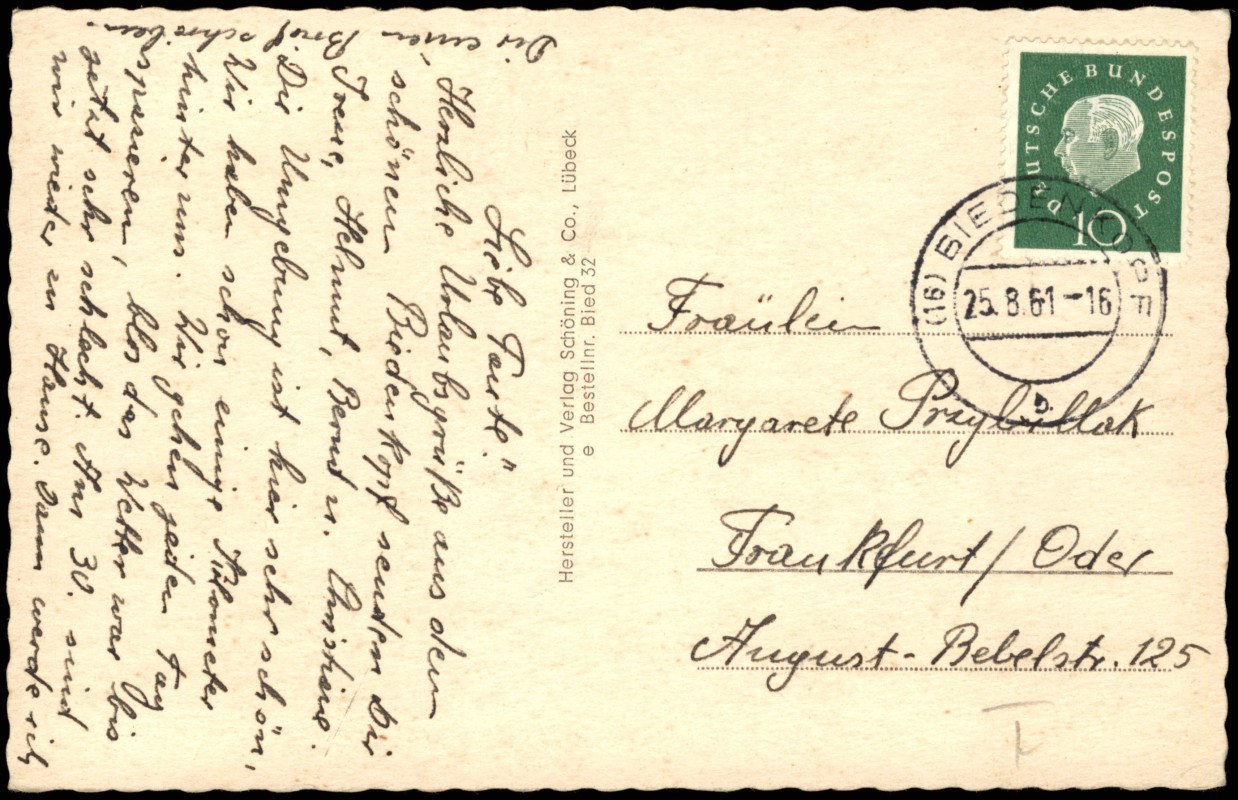 Liebe Tante!"
Herzliche Urlaubsgrüße aus dem
schönen Biedenkopf senden Dir
Irene, Helmut, Bernd u. Christiane.
Die Umgebung ist hier sehr schön,
Wir haben schon einige Kilometer
hinter uns. Wir gehen jeden Tag
spazieren, blos das Wetter war bis
jetzt sehr schlecht. Am 30. sind
wir wieder zu Hause. Dann werde ich
Dir einen Brief schreiben.
Hersteller und Verlag Schöning & Co., Lübeck
e Bestellnr. Bied 32
DEUTSCHE BUNDESPOST
10
(16) BIEDENKOPF
25.8.61-16
b
Fräulein
Margarete Przybillak
Frankfurt/Oder
August-Bebelstr. 125